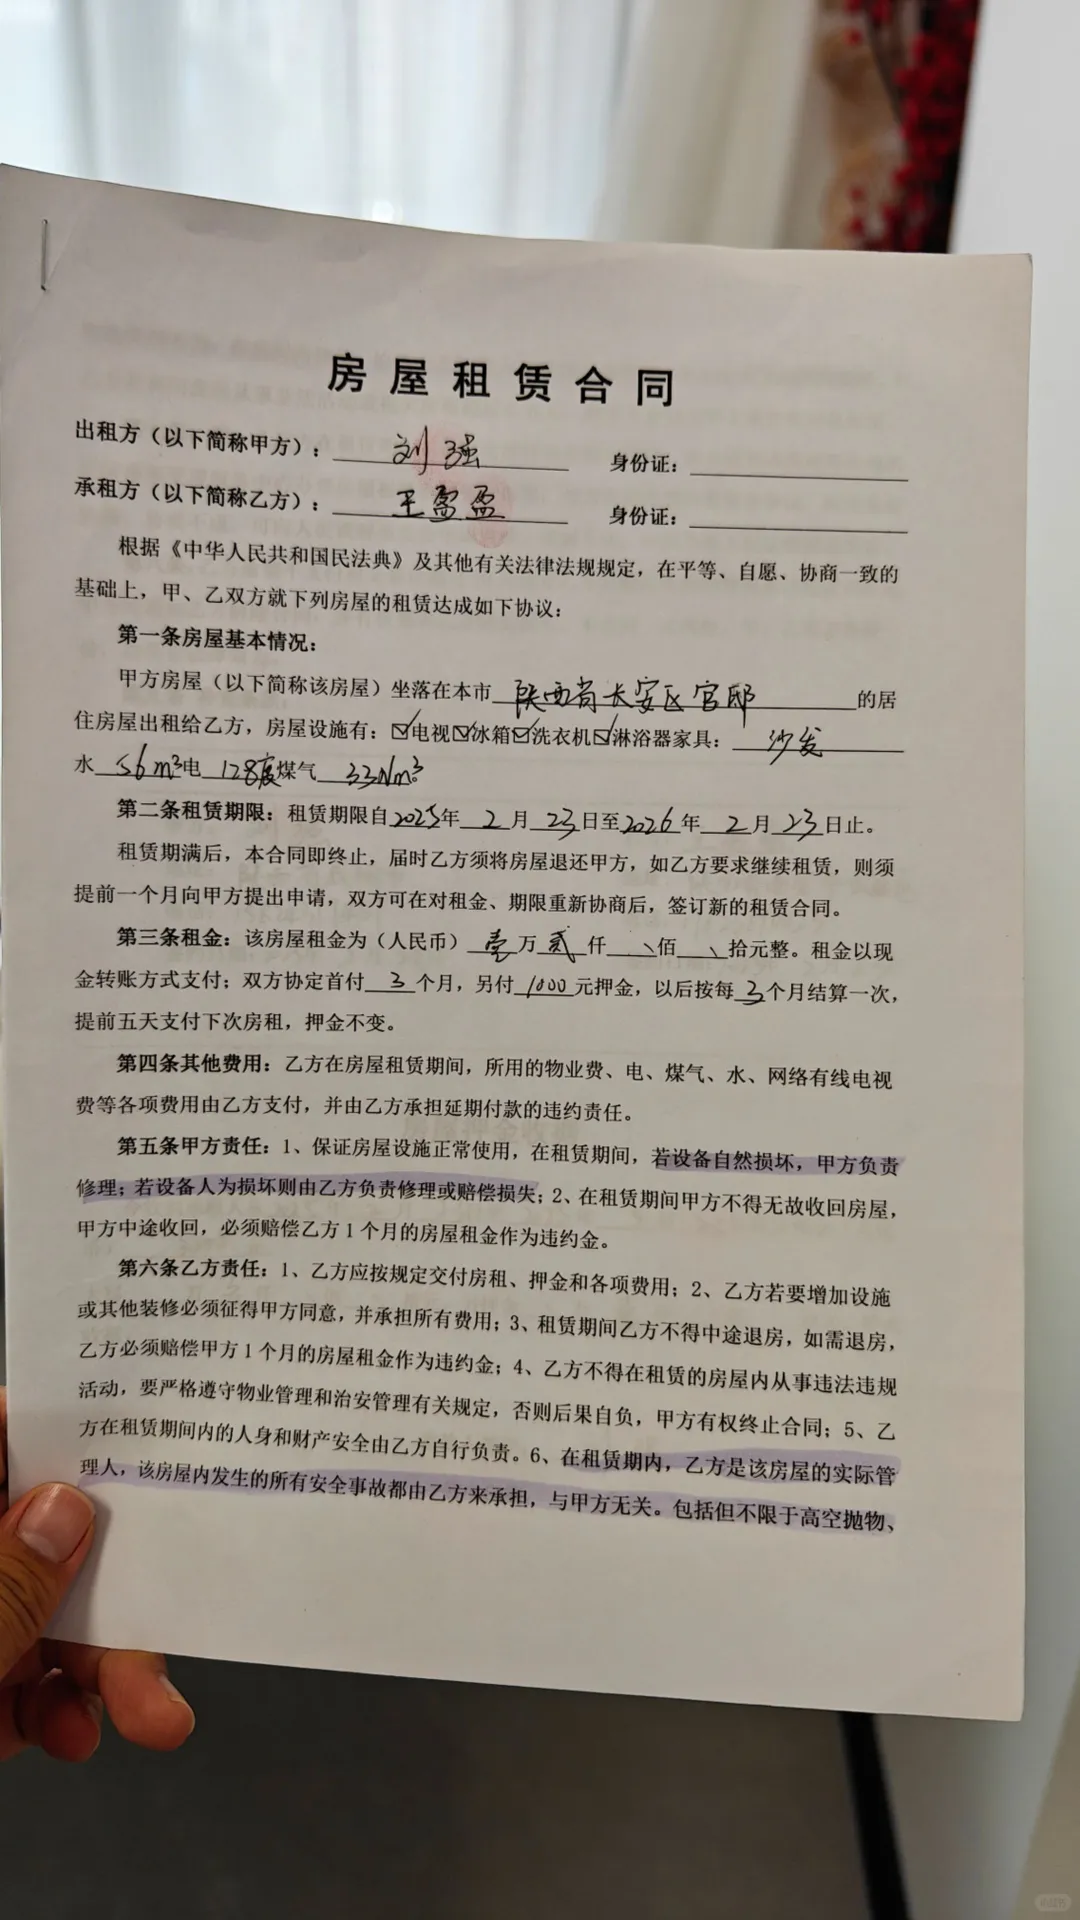 房屋租赁合同
出租方（以下简称甲方）：刘强 身份证：
承租方（以下简称乙方）：王盈盈 身份证：
根据《中华人民共和国民法典》及其他有关法律法规规定，在平等、自愿、协商一致的
基础上，甲、乙双方就下列房屋的租赁达成如下协议：
第一条房屋基本情况：
甲方房屋（以下简称该房屋）坐落在本市陕西省长安区官邸的居
住房屋出租给乙方，房屋设施有：☑电视☑冰箱☑洗衣机☑淋浴器家具：沙发
水56m³电128度煤气33Nm³
第二条租赁期限：租赁期限自2025年2月23日至2026年2月23日止。
租赁期满后，本合同即终止，届时乙方须将房屋退还甲方，如乙方要求继续租赁，则须
提前一个月向甲方提出申请，双方可在对租金、期限重新协商后，签订新的租赁合同。
第三条租金：该房屋租金为（人民币）壹万贰仟、佰、拾元整。租金以现
金转账方式支付；双方协定首付3个月，另付1000元押金，以后按每3个月结算一次，
提前五天支付下次房租，押金不变。
第四条其他费用：乙方在房屋租赁期间，所用的物业费、电、煤气、水、网络有线电视
费等各项费用由乙方支付，并由乙方承担延期付款的违约责任。
第五条甲方责任：1、保证房屋设施正常使用，在租赁期间，若设备自然损坏，甲方负责
修理；若设备人为损坏则由乙方负责修理或赔偿损失；2、在租赁期间甲方不得无故收回房屋，
甲方中途收回，必须赔偿乙方1个月的房屋租金作为违约金。
第六条乙方责任：1、乙方应按规定交付房租、押金和各项费用；2、乙方若要增加设施
或其他装修必须征得甲方同意，并承担所有费用；3、租赁期间乙方不得中途退房，如需退房，
乙方必须赔偿甲方1个月的房屋租金作为违约金；4、乙方不得在租赁的房屋内从事违法违规
活动，要严格遵守物业管理和治安管理有关规定，否则后果自负，甲方有权终止合同；5、乙
方在租赁期间内的人身和财产安全由乙方自行负责。6、在租赁期内，乙方是该房屋的实际管
理人，该房屋内发生的所有安全事故都由乙方来承担，与甲方无关。包括但不限于高空抛物、